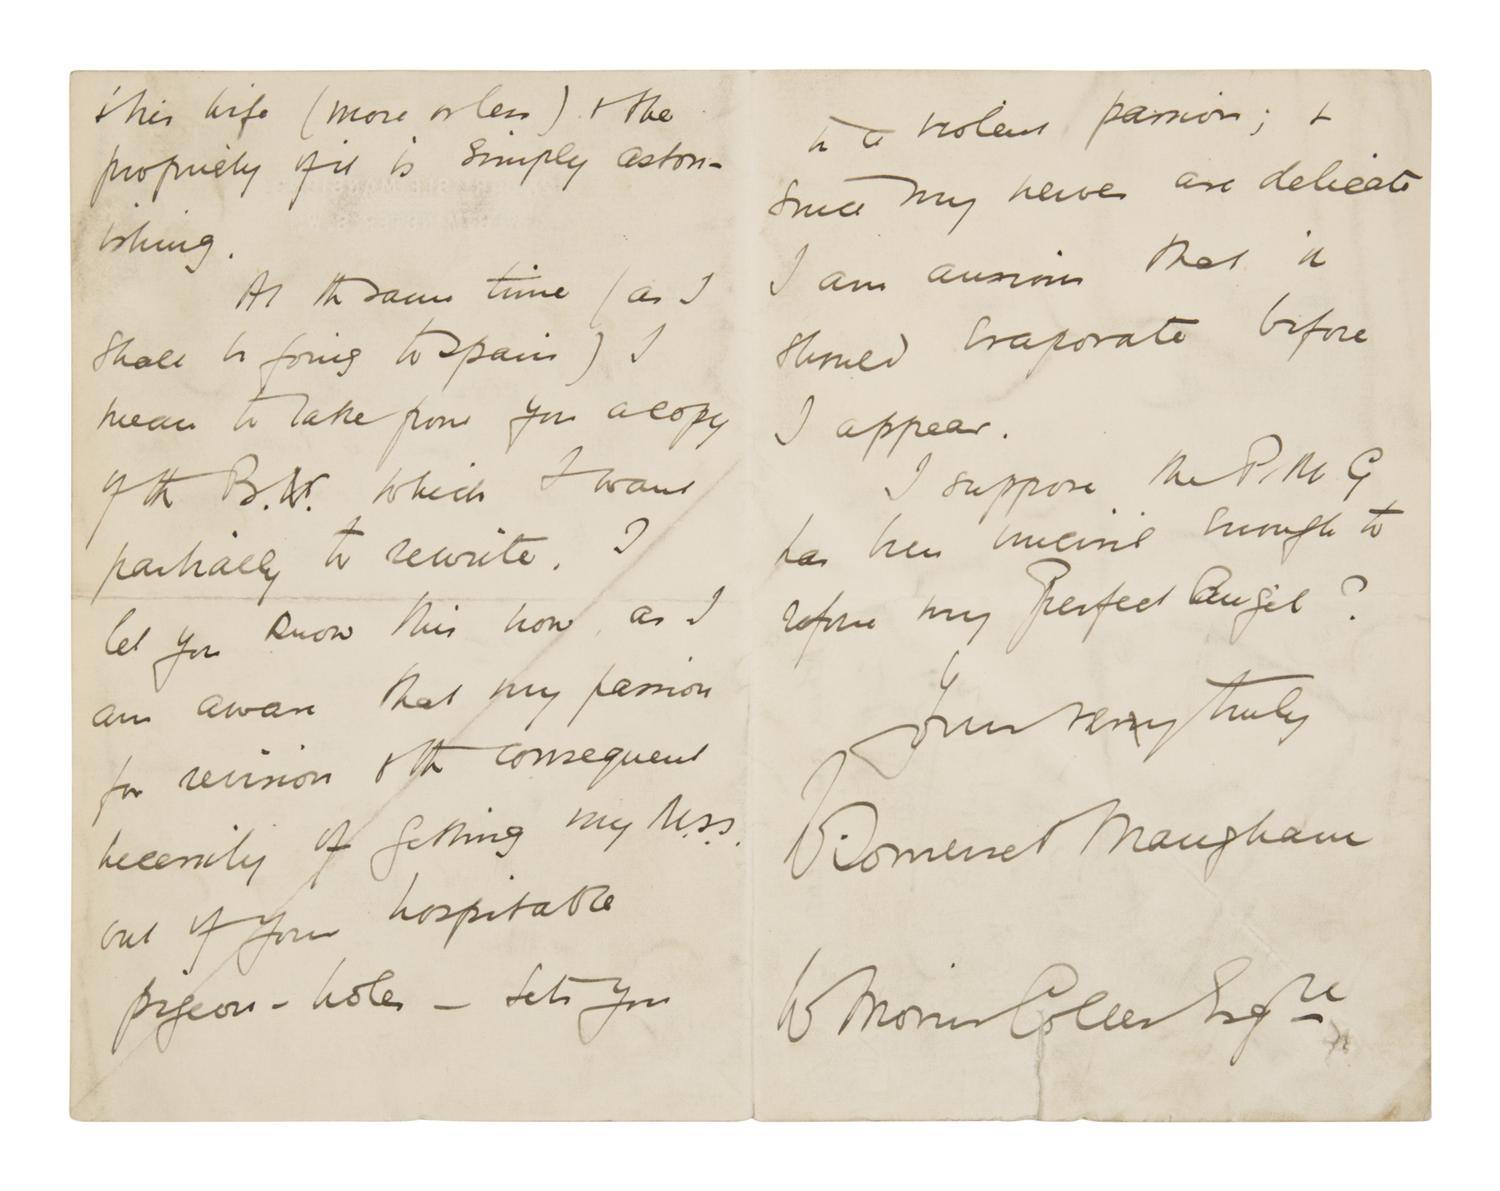 & his wife (more or less) & the
propriety of it is simply aston-
ishing.
At the same time (as I
shall be going to Spain) I
mean to take from you a copy
of the B.W. which I want
partially to rewrite. I
let you know this now, as I
am aware that my passion
for revision & the consequent
necessity of getting my M.S.S.
out of your hospitable
pigeon-holes — sets you
in a violent passion; &
since my nerves are delicate
I am anxious that it
should evaporate before
I appear.
I suppose the P M G
has been uncivil enough to
refuse my Perfect Angel?
Yours very truly
W. Somerset Maugham
W Morris Colles Esqre